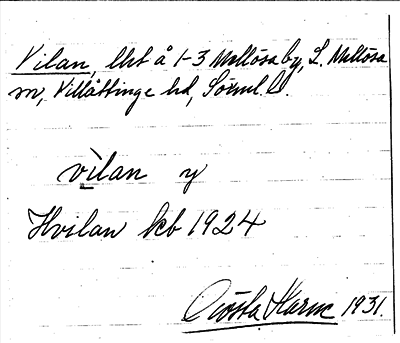 Vilan, lht å 1-3 Mellösa by, L. Mellösa
sn, Villåttinge hd, Sörml. l.
vìlan y
Hvilan kb 1924
Gösta Karm 1931.